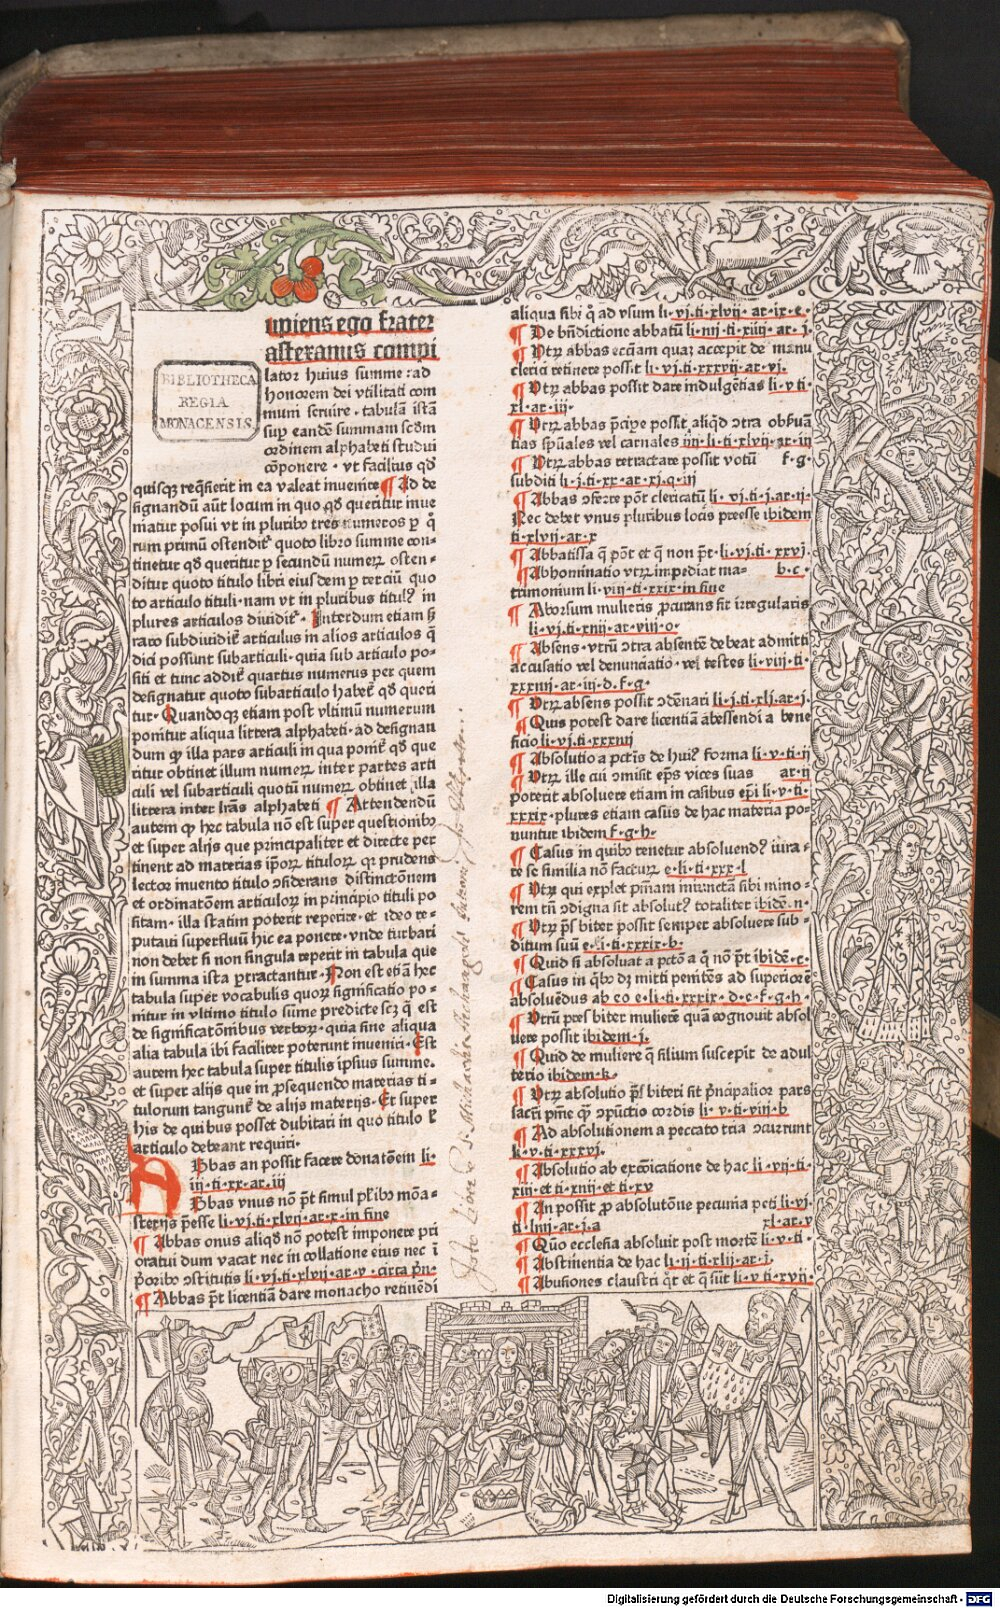 upiens ego frater
asteranus compi
lator huius summe ad
honorem dei vtilitati com
muni seruire · tabulā istā
sup eandē summam scdm
ordinem alphabeti studui
cōponere · vt facilius qd
BIBLIOTHECA
REGIA
MONACENSIS
quisqꝫ reqͥsierit in ea valeat inuenire ¶ Ad de
signandū aūt locum in quo qd queritur inue
niatur posui vt in pluribꝰ tres numeros per qͦ
rum primū ostendit quoto libro summe con
tinetur qd queritur per secundū numerꝫ osten-
ditur quoto titulo libri eiusdem per terciū quo
to articulo tituli · nam vt in pluribus titulꝰ in
plures articulos diuidit · Interdum etiam lꝫ
raro subdiuidit articulus in alios articulos qͥ
dici possunt subarticuli · quia sub articulo po-
siti et tunc addit quartus numerus per quem
designatur quoto subarticulo habet qd queri
tur · Quandoqꝫ etiam post vltimū numerum
ponitur aliqua littera alphabeti · ad designan
dum qͣ illa pars articuli in qua ponit qd que
ritur obtinet illum numerꝫ inter partes arti
culi vel subarticuli quotū numerꝫ obtinet illa
littera inter lras alphabeti ¶ Attendendū
autem qͣ hec tabula nō est super questionibꝰ
et super alijs que principaliter et directe per
tinent ad materias ipōrꝫ titulorꝫ qꝛ prudens
lector inuento titulo ɔsiderans distinctōnem
et ordinatōem articulorꝫ in principio tituli po
sitam · illa statim poterit reperire · et ideo re-
putaui superfluū hic ea ponere · vnde turbari
non debet si non singula reperit in tabula que
in summa ista pertractantur · Non est etiā hec
tabula super vocabulis quorꝫ significatio po-
nitur in vltimo titulo sume predicte scꝫ qͥ est
de significatōnibus verborꝫ · quia sine aliqua
alia tabula ibi faciliter poterunt inueniri · Est
autem hec tabula super titulis ipsius summe.
et super alijs que in ꝓsequendo materias ti-
tulorum tangunt de alijs materijs · Et super
his de quibus posset dubitari in quo titulo vel
articulo debeant requiri ·
Abbas an possit facere donatōem li ·
iij · ti · xx · ar · iij
Abbas vnus nō pōt simul plribꝰ mōa-
sterijs pēesse li · vj · ti · xlvij · ar · x · in fine
¶ Abbas onus aliqd nō potest imponere pri
oratui dum vacat nec in collatione eius nec ī
pͥoribꝰ ɔstitutis li · vj · ti · xlvij · ar · v · circa pͥn ·
¶ Abbas pōt licentiā dare monacho retinēdi
aliqua sibi qͥ ad vsum li · vj · ti · xlvij · ar · ix · e ·
¶ De bn̄dictione abbatū li · iiij · ti · xiiij · ar · j ·
¶ Vtrꝫ abbas eccīam quaꝫ accepit de manu
clerici retinere possit li · vj · ti · xxxvij · ar · vj ·
¶ Vtrꝫ abbas possit dare indulgētias li · v · ti ·
xl · ar · iij ·
¶ Vtrꝫ abbas pͥncipe possit aliqd ɔtra obsuā
tias spūales vel carnales iij · li · ti · xlvij · ar · iij
¶ Vtrꝫ abbas retractare possit votū f · g ·
subditi li · j · ti · xx · ar · xj · q · iij
¶ Abbas ɔferre pōt clericatū li · vj · ti · j · ar · ij ·
Nec debet vnus pluribus locis preesse ibidem
ti · xlvij · ar · x
¶ Abbatissa qͥ pōt et qͥ non pōt · li · vj · ti · xxvj ·
¶ Abhominatio vtrꝫ impediat ma- b · c ·
trimonium li · viij · ti · xxix · in fine
¶ Aborsum mulieris pcurans sit irregularis
li · vj · ti · xiiij · ar · viij · o ·
¶ Absens · vtrū ɔtra absentē debeat admitti
accusatio vel denunciatio · vel testes li · viij · ti ·
xxxiij · ar · iij · d · f · g ·
¶ Vtrꝫ absens possit ɔdēnari li · j · ti · xlj · ar · j ·
¶ Quis potest dare licentiā absessendi a bene
ficio li · vj · ti · xxxiij
¶ Absolutio a pctis de huiꝰ forma li · v · ti · ij
¶ Vtrꝫ ille cui ɔmisit eps vices suas ar · ij
poterit absoluere etiam in casibus epi li · v · ti ·
xxxix · plures etiam casus de hac materia po-
nuntur ibidem f · g · h ·
¶ Casus in quibꝰ tenetur absoluendꝰ iura-
re se similia nō facturꝫ e · li · ti · xxx · l
¶ Vtrꝫ qui explet pn̄iam iniunctam sibi mino-
rem tn̄ ɔdigna sit absolutꝰ totaliter ibidē · n ·
¶ Vtrꝫ pͥsbiter possit semper absoluere sub-
ditum suū e · li · ti · xxxix · b ·
¶ Quid si absoluat a pctō a qͦ nō pōt ibidē · c ·
¶ Casus in qͥbꝰ dꝫ mitti penitēs ad superiorē
absoluēdus ab eo e · li · ti · xxxix · d · e · f · g · h ·
¶ Vtrū presbiter mulierē quā cognouit absol
uere possit ibidem · j ·
¶ Quid de muliere qͥ filium suscepit de adul
terio ibidem · k ·
¶ Vtrꝫ absolutio pͥsbiteri sit pͥncipalior pars
sacri pn̄ie qͣ ɔpūctio cordis li · v · ti · viij · b
¶ Ad absolutionem a peccato tria ɔcurrunt
li · v · ti · xxxvj ·
¶ Absolutio ab excōicatione de hac li · vij · ti ·
xiij · et ti · xiiij · et ti · xv
¶ An possit ꝓ absolutōne pecunia peti li · vj ·
ti · liiij · ar · j · a xl · ar · v
¶ Quō ecclesia absoluit post mortē li · v · ti ·
¶ Abstinentia de hac li · ij · ti · xlij · ar · j ·
¶ Abusiones claustri qͦt et qͥ sūt li · v · ti · xvij ·
Digitalisierung gefördert durch die Deutsche Forschungsgemeinschaft - DFG